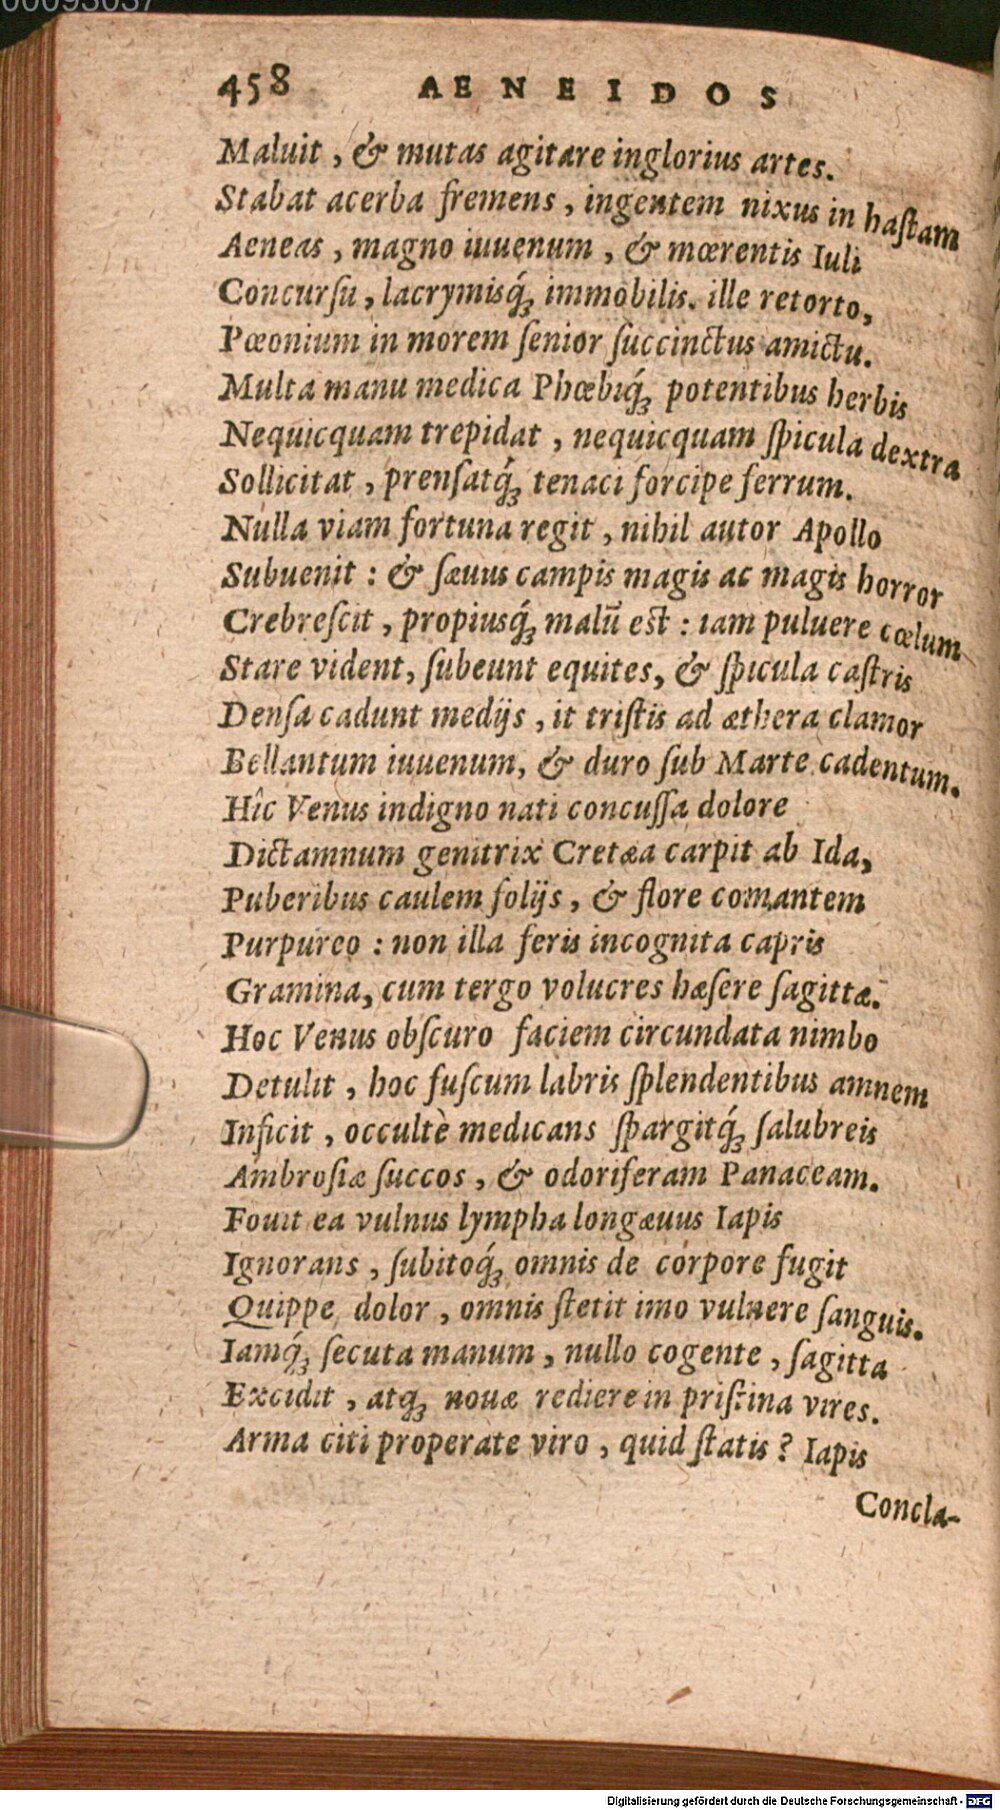 00093037
458 AENEIDOS
Maluit, & mutas agitare inglorius artes.
Stabat acerba fremens, ingentem nixus in haſtam
Aeneas, magno iuuenum, & mœrentis Iuli
Concurſu, lacrymisq́ꝫ immobilis. ille retorto,
Pœonium in morem ſenior ſuccinctus amictu.
Multa manu medica Phœbiq́ꝫ potentibus herbis
Nequicquam trepidat, nequicquam ſpicula dextra
Sollicitat, prenſatq́ꝫ tenaci forcipe ferrum.
Nulla viam fortuna regit, nihil autor Apollo
Subuenit: & ſæuus campis magis ac magis horror
Crebreſcit, propiusq́ꝫ malũ est: iam puluere cœlum
Stare vident, ſubeunt equites, & ſpicula caſtris
Denſa cadunt medijs, it triſtis ad æthera clamor
Bellantum iuuenum, & duro ſub Marte cadentum.
Hîc Venus indigno nati concuſſa dolore
Dictamnum genitrix Cretæa carpit ab Ida,
Puberibus caulem folijs, & flore comantem
Purpureo: non illa feris incognita capris
Gramina, cum tergo volucres hæſere ſagittæ.
Hoc Venus obſcuro faciem circundata nimbo
Detulit, hoc fuſcum labris ſplendentibus amnem
Inficit, occultè medicans ſpargitq́ꝫ ſalubreis
Ambroſiæ ſuccos, & odoriferam Panaceam.
Fouit ea vulnus lympha longæuus Iapis
Ignorans, ſubitoq́ꝫ omnis de corpore fugit
Quippe dolor, omnis ſtetit imo vulnere ſanguis.
Iamq́ꝫ ſecuta manum, nullo cogente, ſagitta
Excidit, atqꝫ nouæ rediere in priſtina vires.
Arma citi properate viro, quid ſtatis? Iapis
Concla-
Digitalisierung gefördert durch die Deutsche Forschungsgemeinschaft - DFG